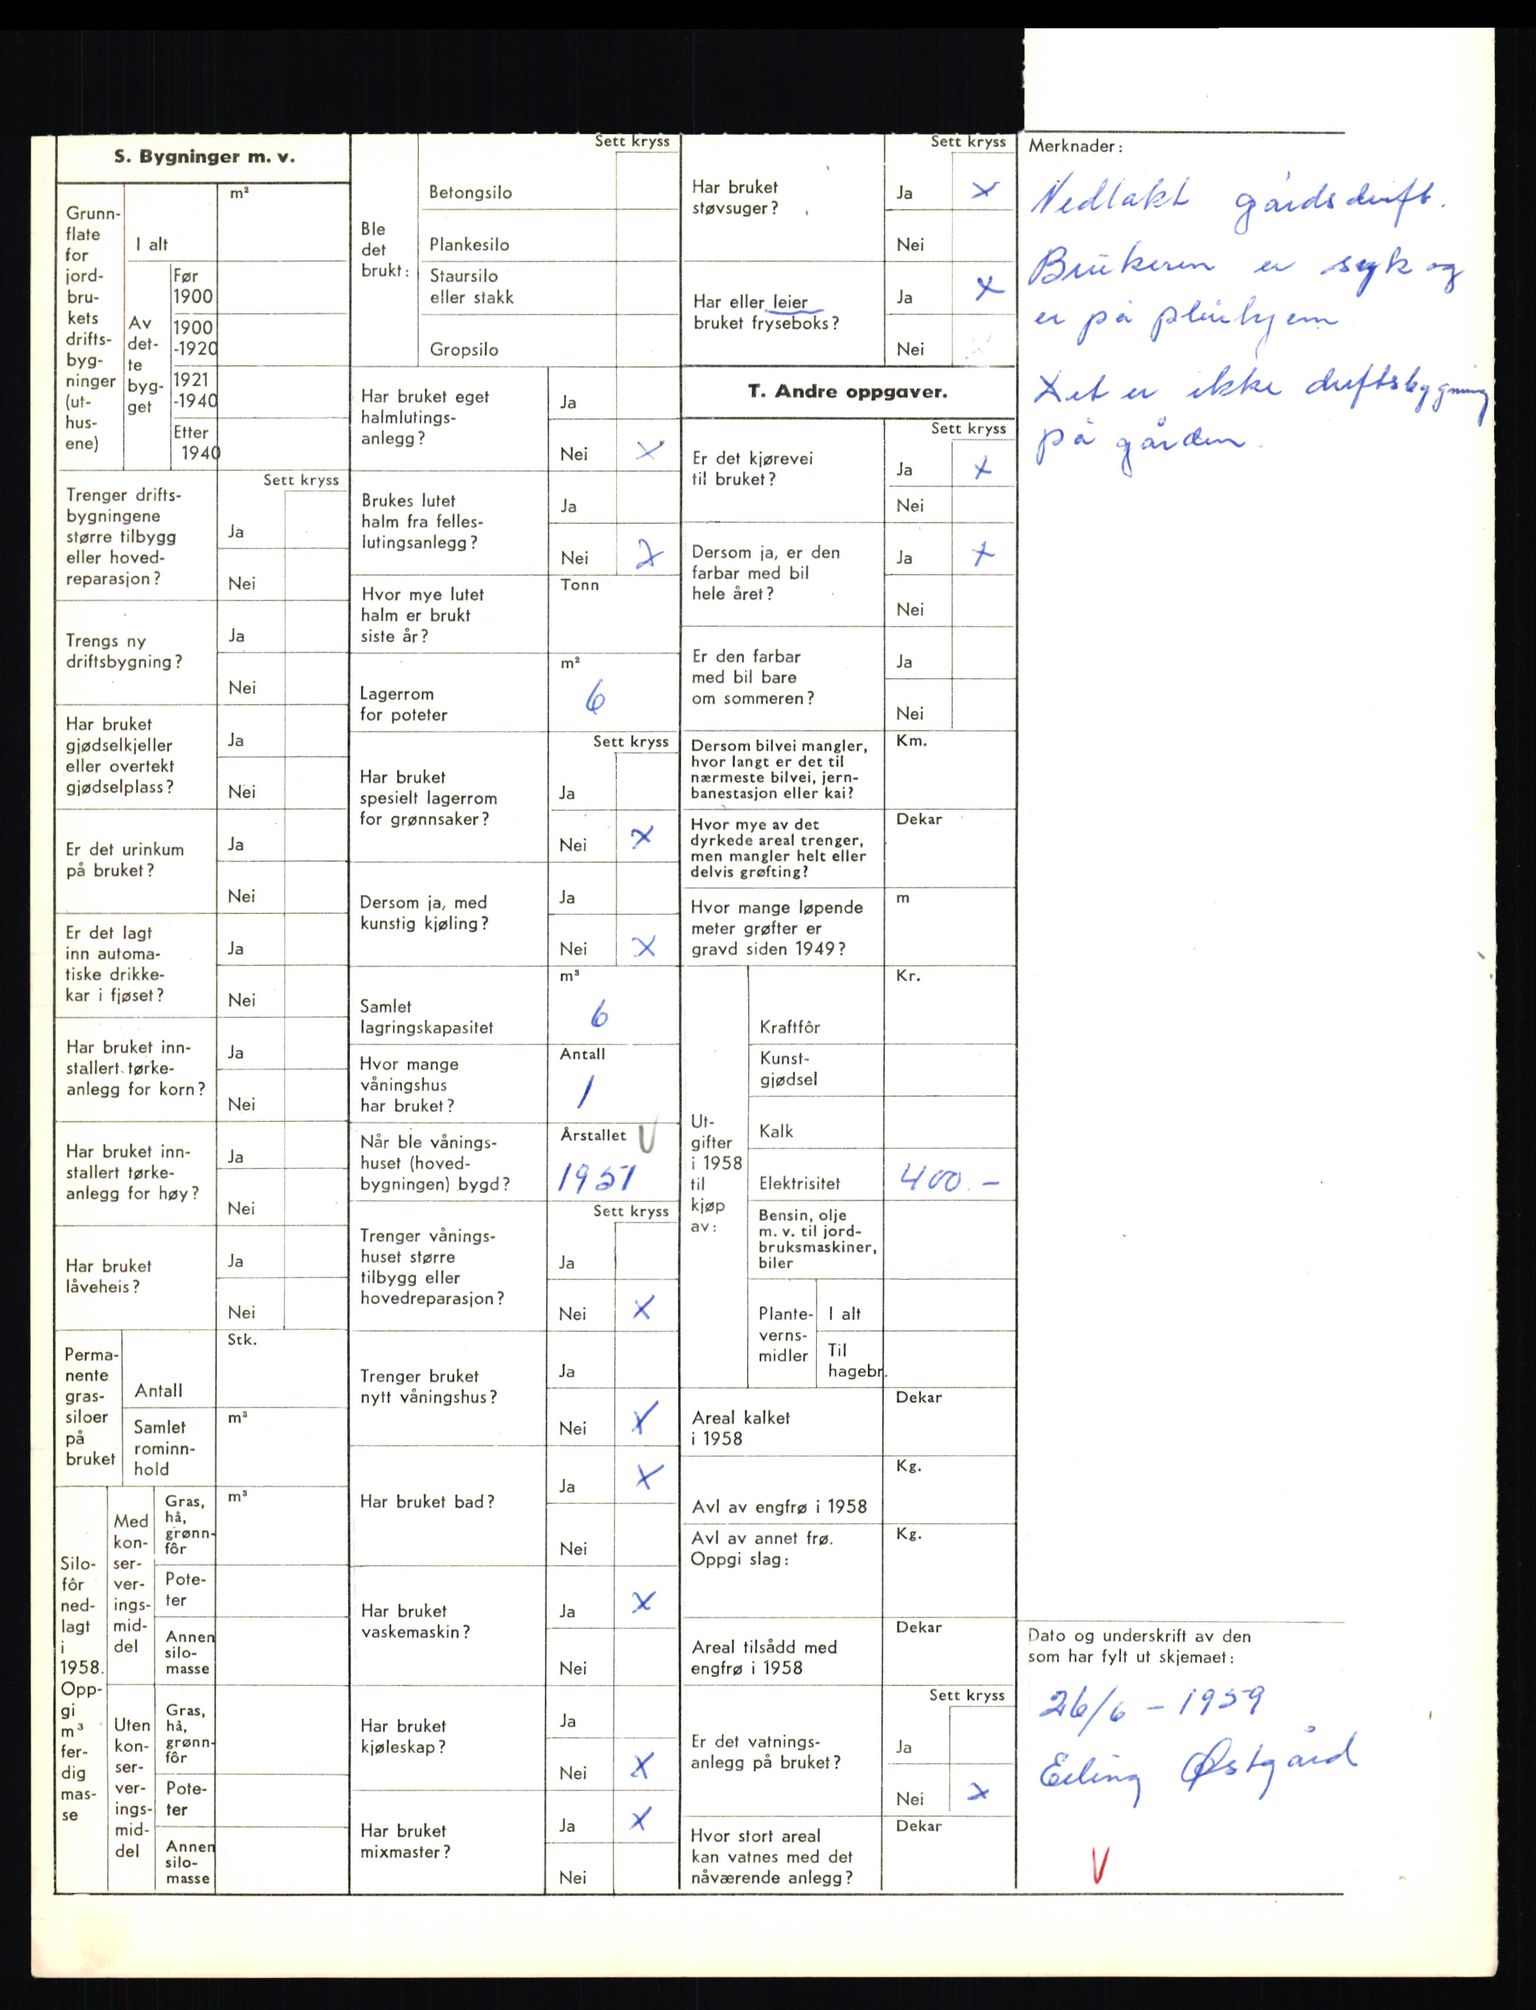 S. Bygninger m. v.
m²
Grunn-
flate
for
jord-
bru-
kets
drifts-
byg-
ninger
(ut-
hus-
ene)
I alt
Av
det-
te
byg-
get
Før
1900
1900
-1920
1921
-1940
Etter
1940
Sett kryss
Trenger drifts-
bygningene
større tilbygg
eller hoved-
reparasjon?
Ja
Nei
Trengs ny
driftsbygning?
Ja
Nei
Har bruket
gjødselkjeller
eller overtekt
gjødselplass?
Ja
Nei
Er det urinkum
på bruket?
Ja
Nei
Er det lagt
inn automa-
tiske drikke-
kar i fjøset?
Ja
Nei
Har bruket inn-
stallert tørke-
anlegg for korn?
Ja
Nei
Har bruket inn-
stallert tørke-
anlegg for høy?
Ja
Nei
Har bruket
låveheis?
Ja
Nei
Perma-
nente
gras-
siloer
på
bruket
Stk.
Antall
Samlet
rominn-
hold
m³
Silo-
fôr
ned-
lagt
i
1958.
Opp-
gi
m³
fer-
dig
mas-
se
Med
kon-
ser-
ver-
ings-
mid-
del
Gras,
hå,
grønn-
fôr
m³
Pote-
ter
Annen
silo-
masse
Uten
kon-
ser-
ver-
ings-
mid-
del
Gras,
hå,
grønn-
fôr
Pote-
ter
Annen
silo-
masse
Sett kryss
Ble
det
brukt:
Betongsilo
Plankesilo
Staursilo
eller stakk
Gropsilo
Har bruket eget
halmlutings-
anlegg?
Ja
Nei x
Brukes lutet
halm fra felles-
lutingsanlegg?
Ja
Nei x
Hvor mye lutet
halm er brukt
siste år?
Tonn
Lagerrom
for poteter
m²
6
Sett kryss
Har bruket
spesielt lagerrom
for grønnsaker?
Ja
Nei x
Dersom ja, med
kunstig kjøling?
Ja
Nei x
Samlet
lagringskapasitet
m³
6
Hvor mange
våningshus
har bruket?
Antall
1
Når ble vånings-
huset (hoved-
bygningen) bygd?
Årstallet V
1951
Sett kryss
Trenger vånings-
huset større
tilbygg eller
hovedreparasjon?
Ja
Nei x
Trenger bruket
nytt våningshus?
Ja
Nei x
Har bruket bad?
Ja x
Nei
Har bruket
vaskemaskin?
Ja x
Nei
Har bruket
kjøleskap?
Ja
Nei x
Har bruket
mixmaster?
Ja x
Nei
Sett kryss
Har bruket
støvsuger?
Ja x
Nei
Har eller leier
bruket fryseboks?
Ja x
Nei
T. Andre oppgaver.
Sett kryss
Er det kjørevei
til bruket?
Ja x
Nei
Dersom ja, er den
farbar med bil
hele året?
Ja x
Nei
Er den farbar
med bil bare
om sommeren?
Ja
Nei
Dersom bilvei mangler,
hvor langt er det til
nærmeste bilvei, jern-
banestasjon eller kai?
Km.
Hvor mye av det
dyrkede areal trenger,
men mangler helt eller
delvis grøfting?
Dekar
Hvor mange løpende
meter grøfter er
gravd siden 1949?
m
Ut-
gifter
i 1958
til
kjøp
av:
Kr.
Kraftfôr
Kunst-
gjødsel
Kalk
Elektrisitet 400.–
Bensin, olje
m. v. til jord-
bruksmaskiner,
biler
Plante-
verns-
midler
I alt
Til
hagebr.
Areal kalket
i 1958
Dekar
Avl av engfrø i 1958
Kg.
Avl av annet frø.
Oppgi slag:
Kg.
Areal tilsådd med
engfrø i 1958
Dekar
Sett kryss
Er det vatnings-
anlegg på bruket?
Ja
Nei x
Hvor stort areal
kan vatnes med det
nåværende anlegg?
Dekar
Merknader:
Nedlakt gårdsdrift.
Brukeren er syk og
er på pleiehjem
Det er ikke driftsbygning
på gården.
Dato og underskrift av den
som har fylt ut skjemaet:
26/6 – 1959
Erling Østgård
V